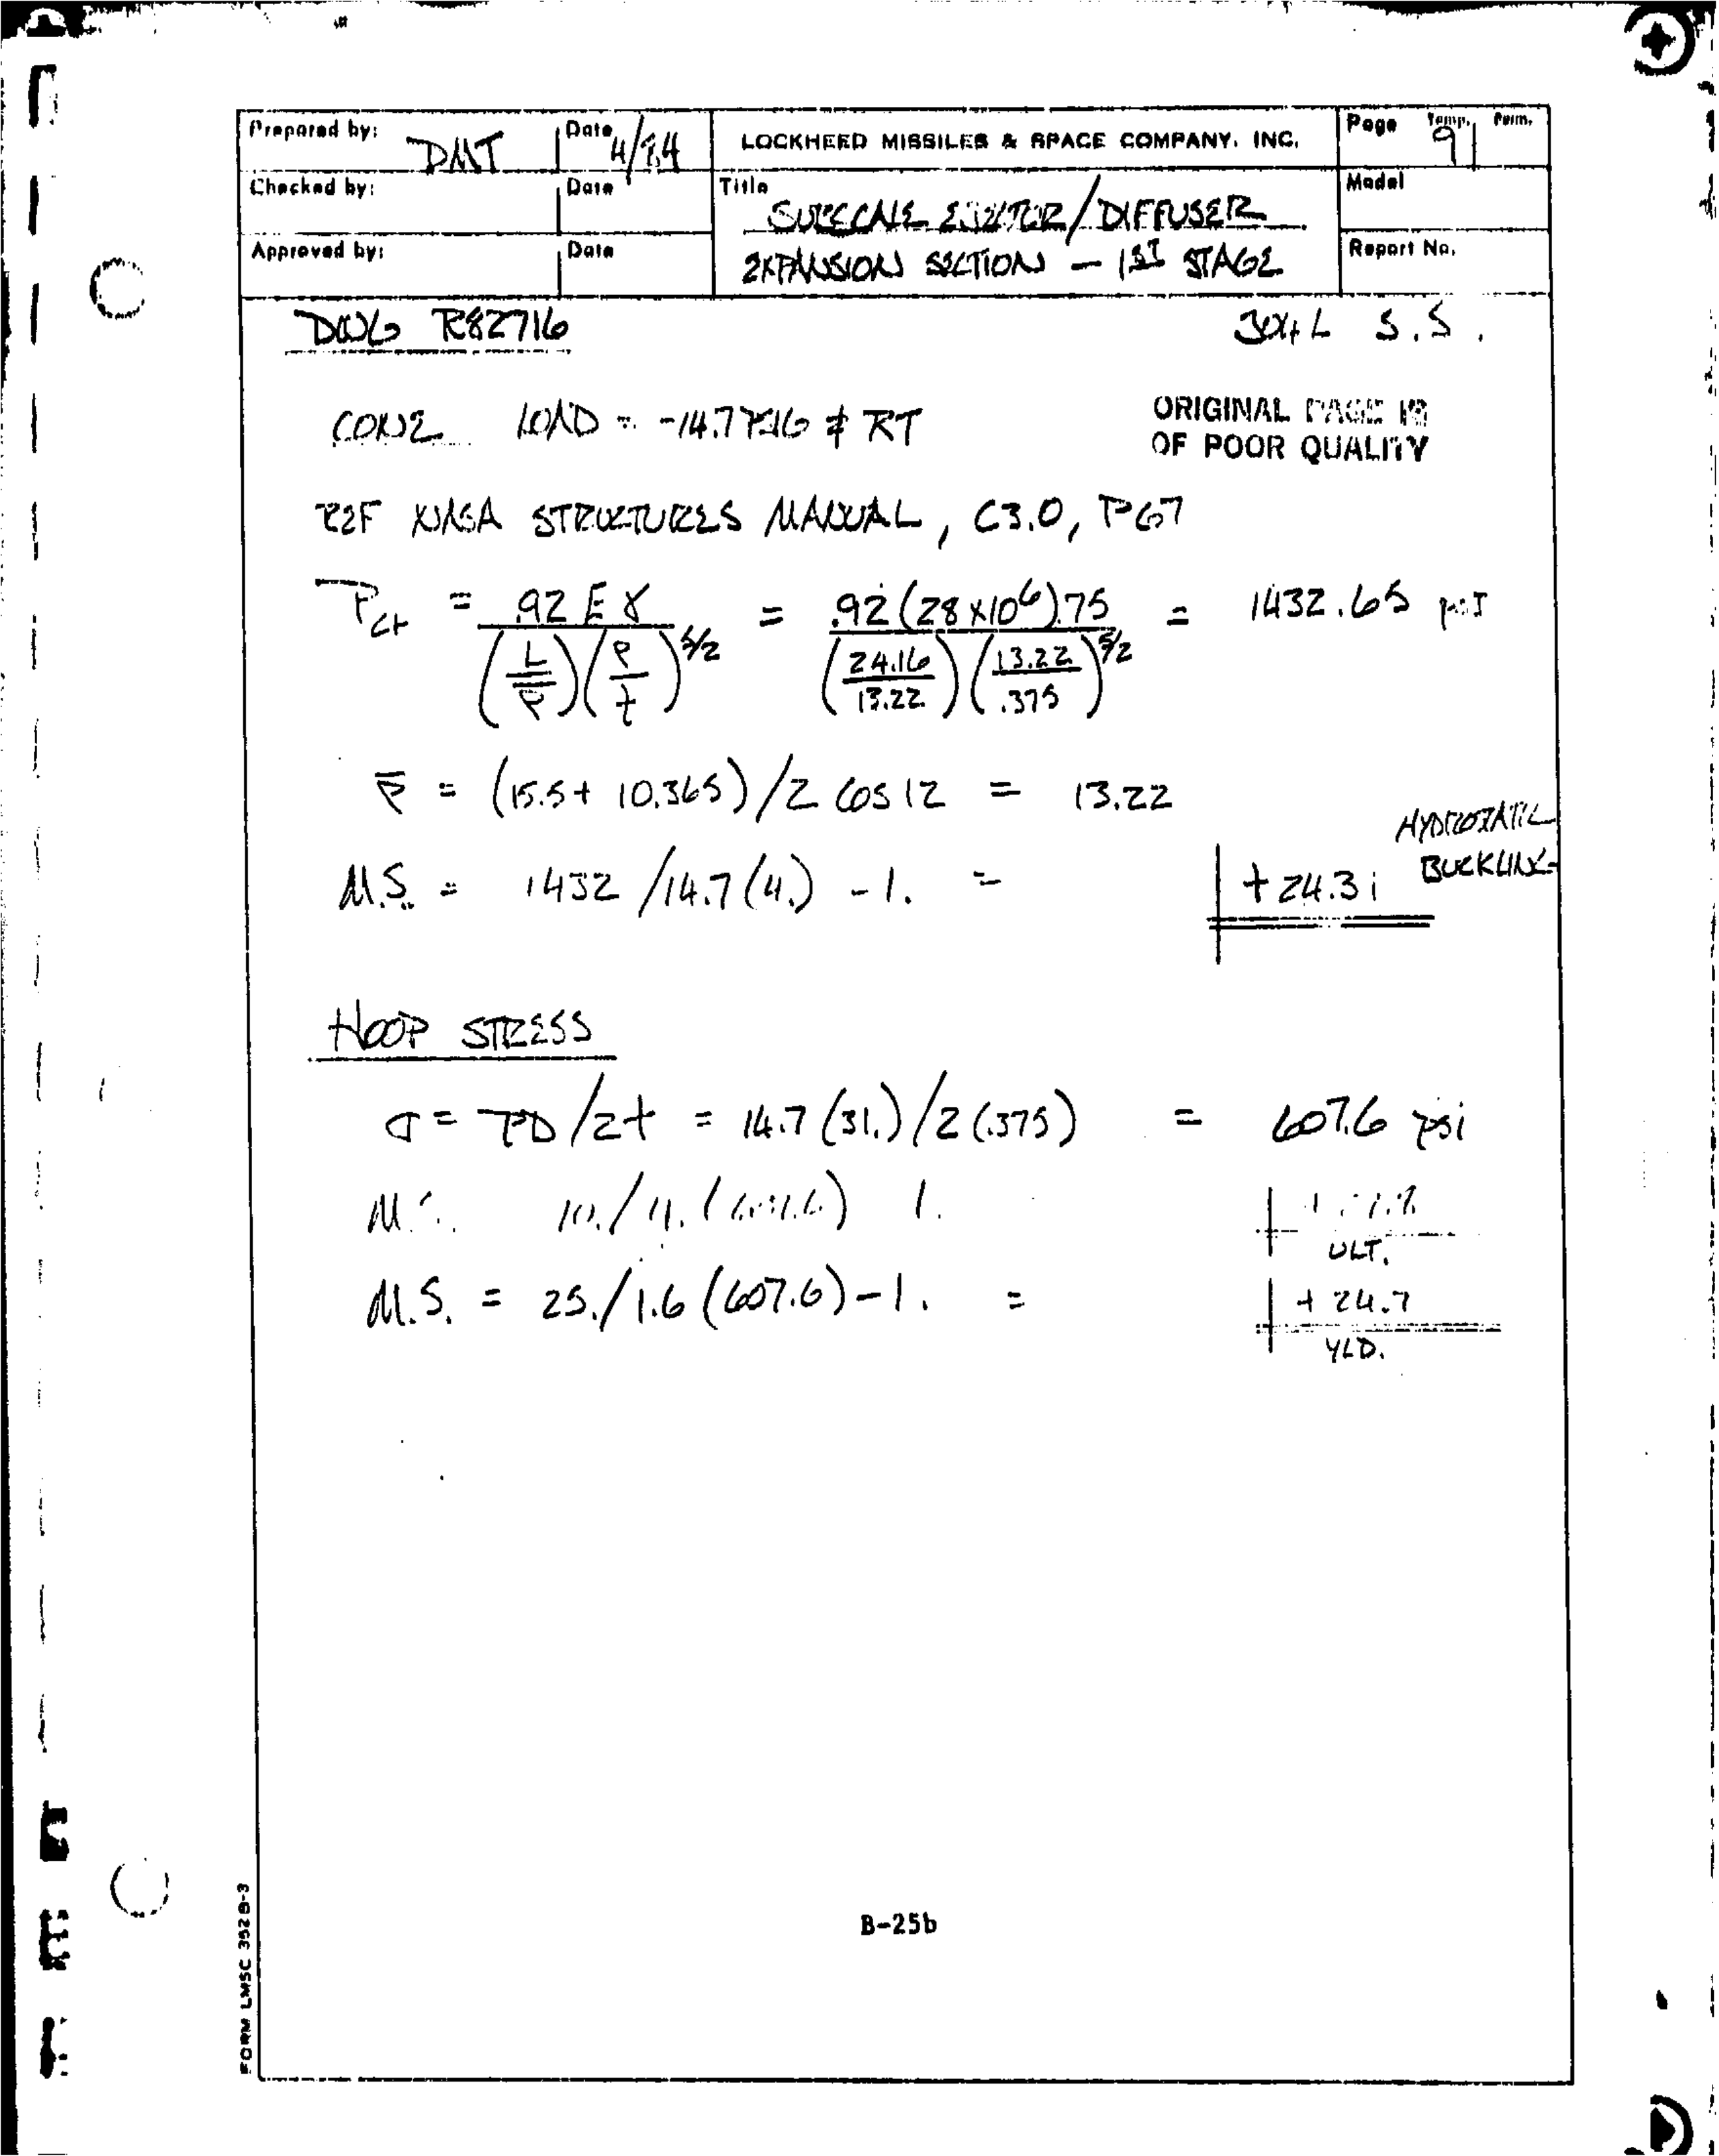 Prepared by: DMT Date 4/84 LOCKHEED MISSILES & SPACE COMPANY, INC. Page Temp. 9 Perm.
Checked by: Date Title SUBSCALE EJECTOR/DIFFUSER Model
Approved by: Date EXPANSION SECTION – 1ST STAGE Report No.
DWG R82716 304L S.S.
CONE LOAD = -14.7 PSIG RT
ORIGINAL PAGE IS
OF POOR QUALITY
REF NASA STRUCTURES MANUAL, C3.0, P67
Pcr = .92 E γ / (L/ρ̄)(ρ̄/t)^5/2 = .92 (28×10⁶).75 / (24.16/13.22)(13.22/.375)^5/2 = 1432.65 psi
ρ̄ = (15.5 + 10.365)/2 COS 12 = 13.22
HYDROSTATIC
BUCKLING
M.S. = 1432/14.7(4.) - 1. = +24.3
HOOP STRESS
σ = PD/2t = 14.7(31.)/2(.375) = 607.6 psi
M.S. 1.
ULT.
M.S. = 25./1.6(607.6) - 1. = +24.7
YLD.
B-25b
FORM LMSC 3528-3